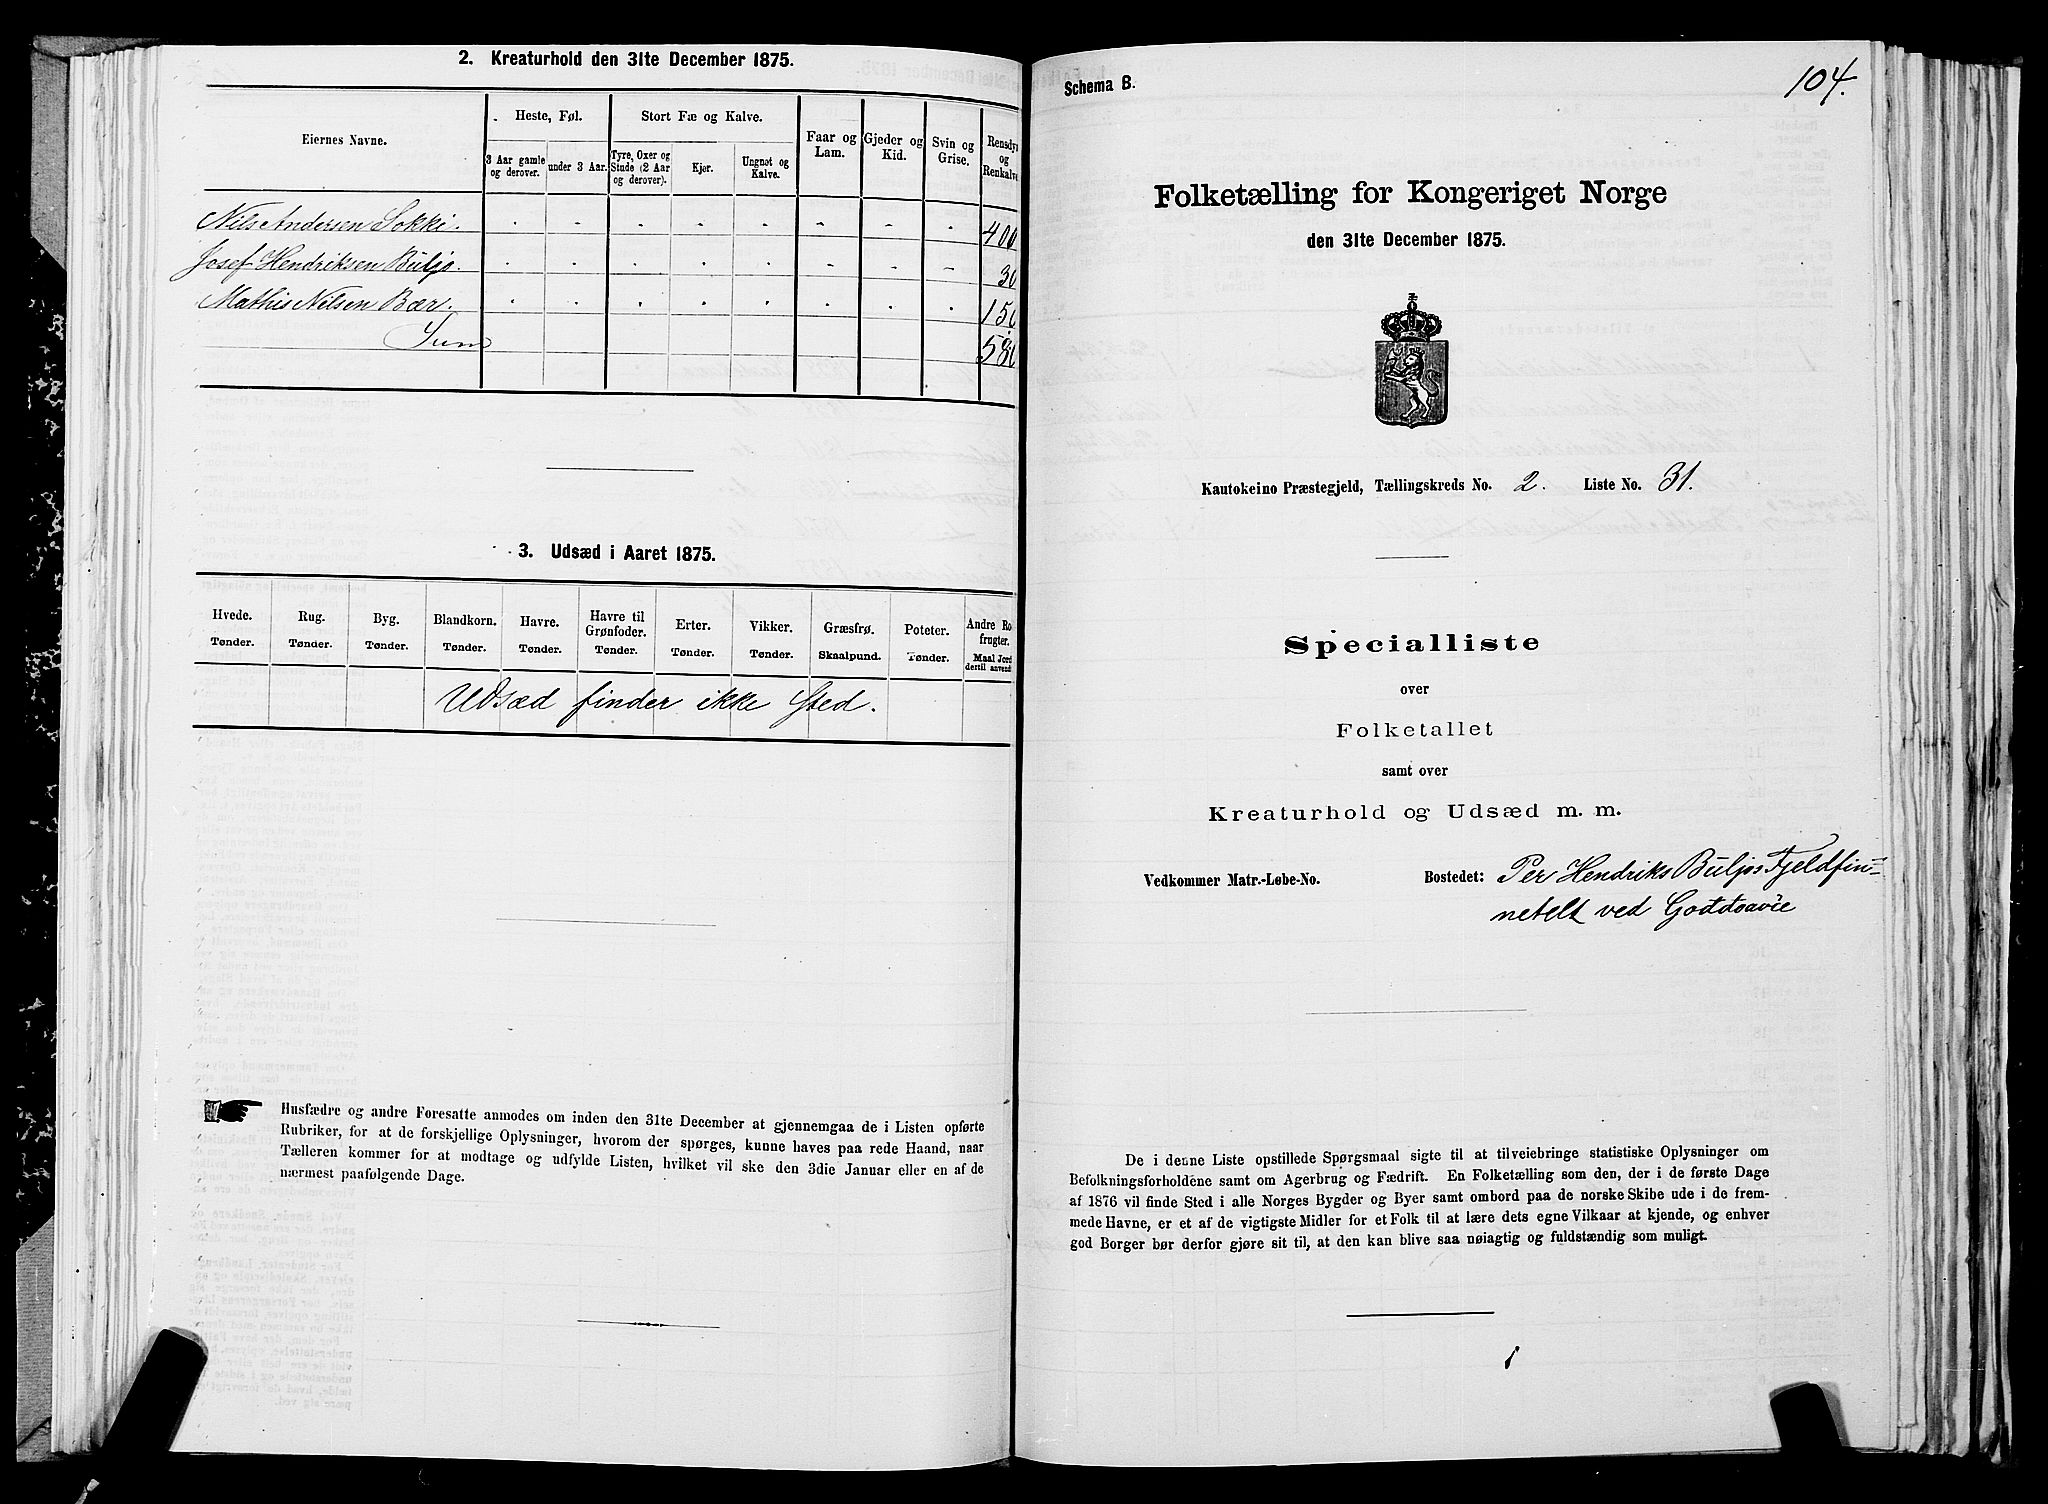 2. Kreaturhold den 31te December 1875.
Eiernes Navne.
Heste, Føl.
Stort Fæ og Kalve.
Faar og Lam.
Gjeder og Kid.
Svin og Grise.
Rensdyr og Renkalve
3 Aar gamle og derover.
under 3 Aar.
Tyre, Oxer og Stude (2 Aar og derover).
Kjør.
Ungnøt og Kalve.
Nils Andersen Sokki. 400
Josef Hendriksen Buljo. 30
Mathis Nilsen Bær. 150
Sum 580
3. Udsæd i Aaret 1875.
Hvede. Rug. Byg. Blandkorn. Havre. Havre til Grønfoder. Erter. Vikker. Græsfrø. Poteter. Andre Ro frugter.
Tønder. Tønder. Tønder. Tønder. Tønder. Tønder. Tønder. Tønder. Skaalpund. Tønder. Maal Jord dertil anvend
Udsæd finder ikke Sted.
Husfædre og andre Foresatte anmodes om inden den 31te December at gjennemgaa de i Listen opførte
Rubriker, for at de forskjellige Oplysninger, hvorom der spørges, kunne haves paa rede Haand, naar
Tælleren kommer for at modtage og udfylde Listen, hvilket vil ske den 3die Januar eller en af de
nærmest paafølgende Dage.
104.
Schema B.
Folketælling for Kongeriget Norge
den 31te December 1875.
Kautokeino Præstegjeld, Tællingskreds No. 2. Liste No. 31.
Specialliste
over
Folketallet
samt over
Kreaturhold og Udsæd m. m.
Vedkommer Matr.-Løbe-No. Bostedet: Per Hendriks Buljos Fjeldfin=
netelt ved
De i denne Liste opstillede Spørgsmaal sigte til at tilveiebringe statistiske Oplysninger om
Befolkningsforholdene samt om Agerbrug og Fædrift. En Folketælling som den, der i de første Dage
af 1876 vil finde Sted i alle Norges Bygder og Byer samt ombord paa de norske Skibe ude i de frem-
mede Havne, er et af de vigtigste Midler for et Folk til at lære dets egne Vilkaar at kjende, og enhver
god Borger bør derfor gjøre sit til, at den kan blive saa nøiagtig og fuldstændig som muligt.